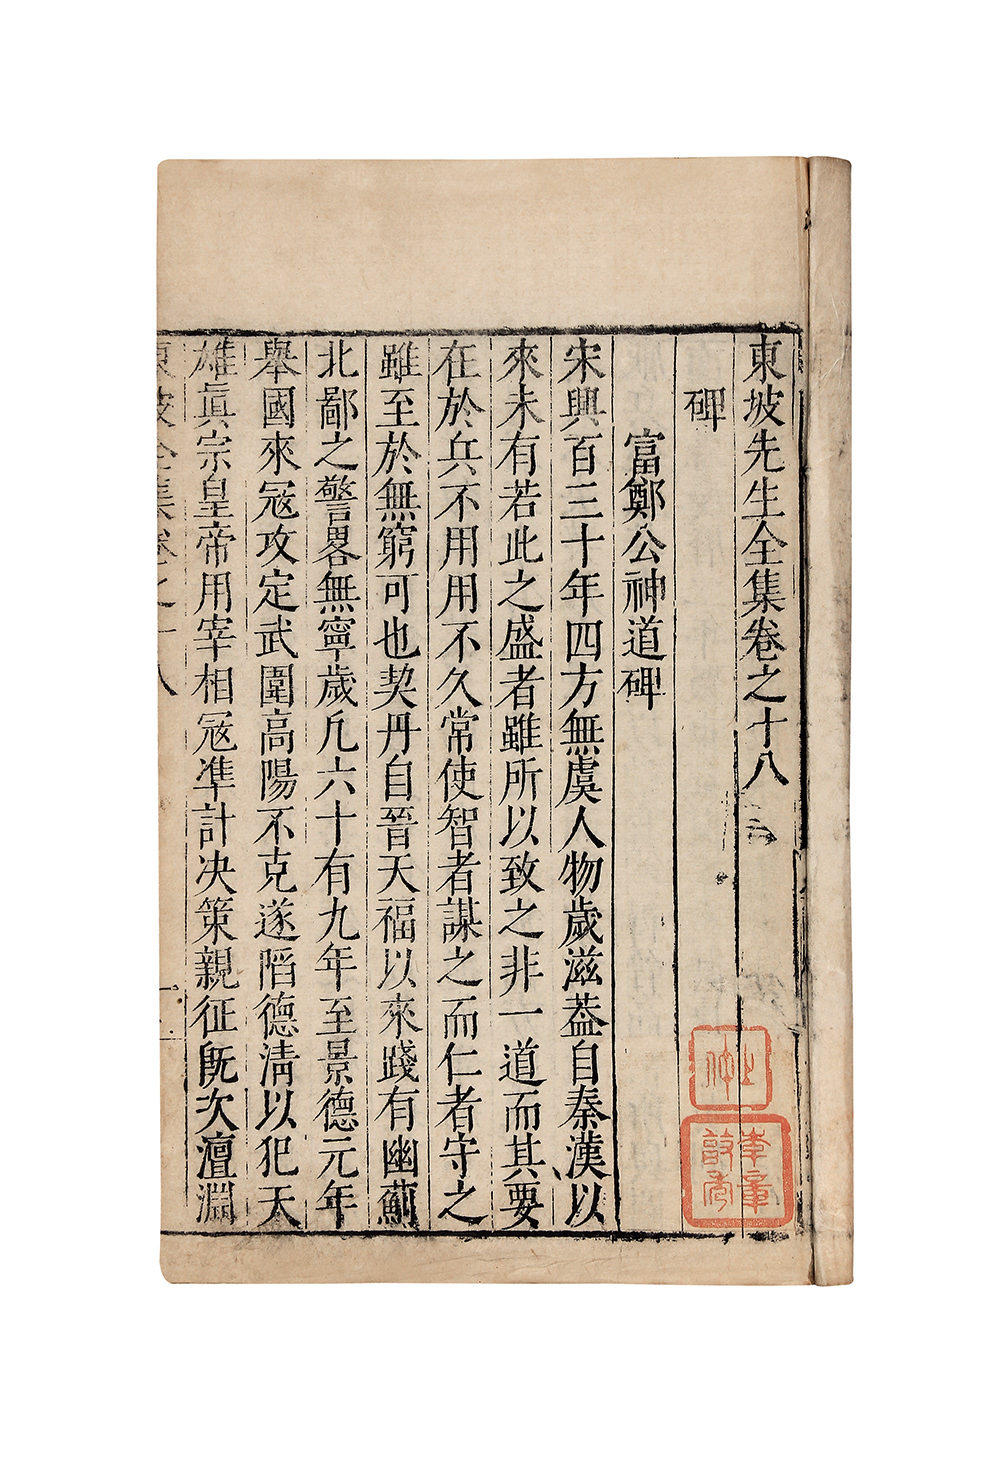 東坡先生全集卷之十八
碑
富鄭公神道碑
宋興百三十年四方無虞人物歲滋葢自秦漢以
來未有若此之盛者雖所以致之非一道而其要
在於兵不用用不久常使智者謀之而仁者守之
雖至於無窮可也契丹自晉天福以來踐有幽薊
北鄙之警畧無寧歲凡六十有九年至景德元年
舉國來冦攻定武圍高陽不克遂陷德淸以犯天
雄眞宗皇帝用宰相冦準計决策親征旣次澶淵
東坡全集卷之十八
一